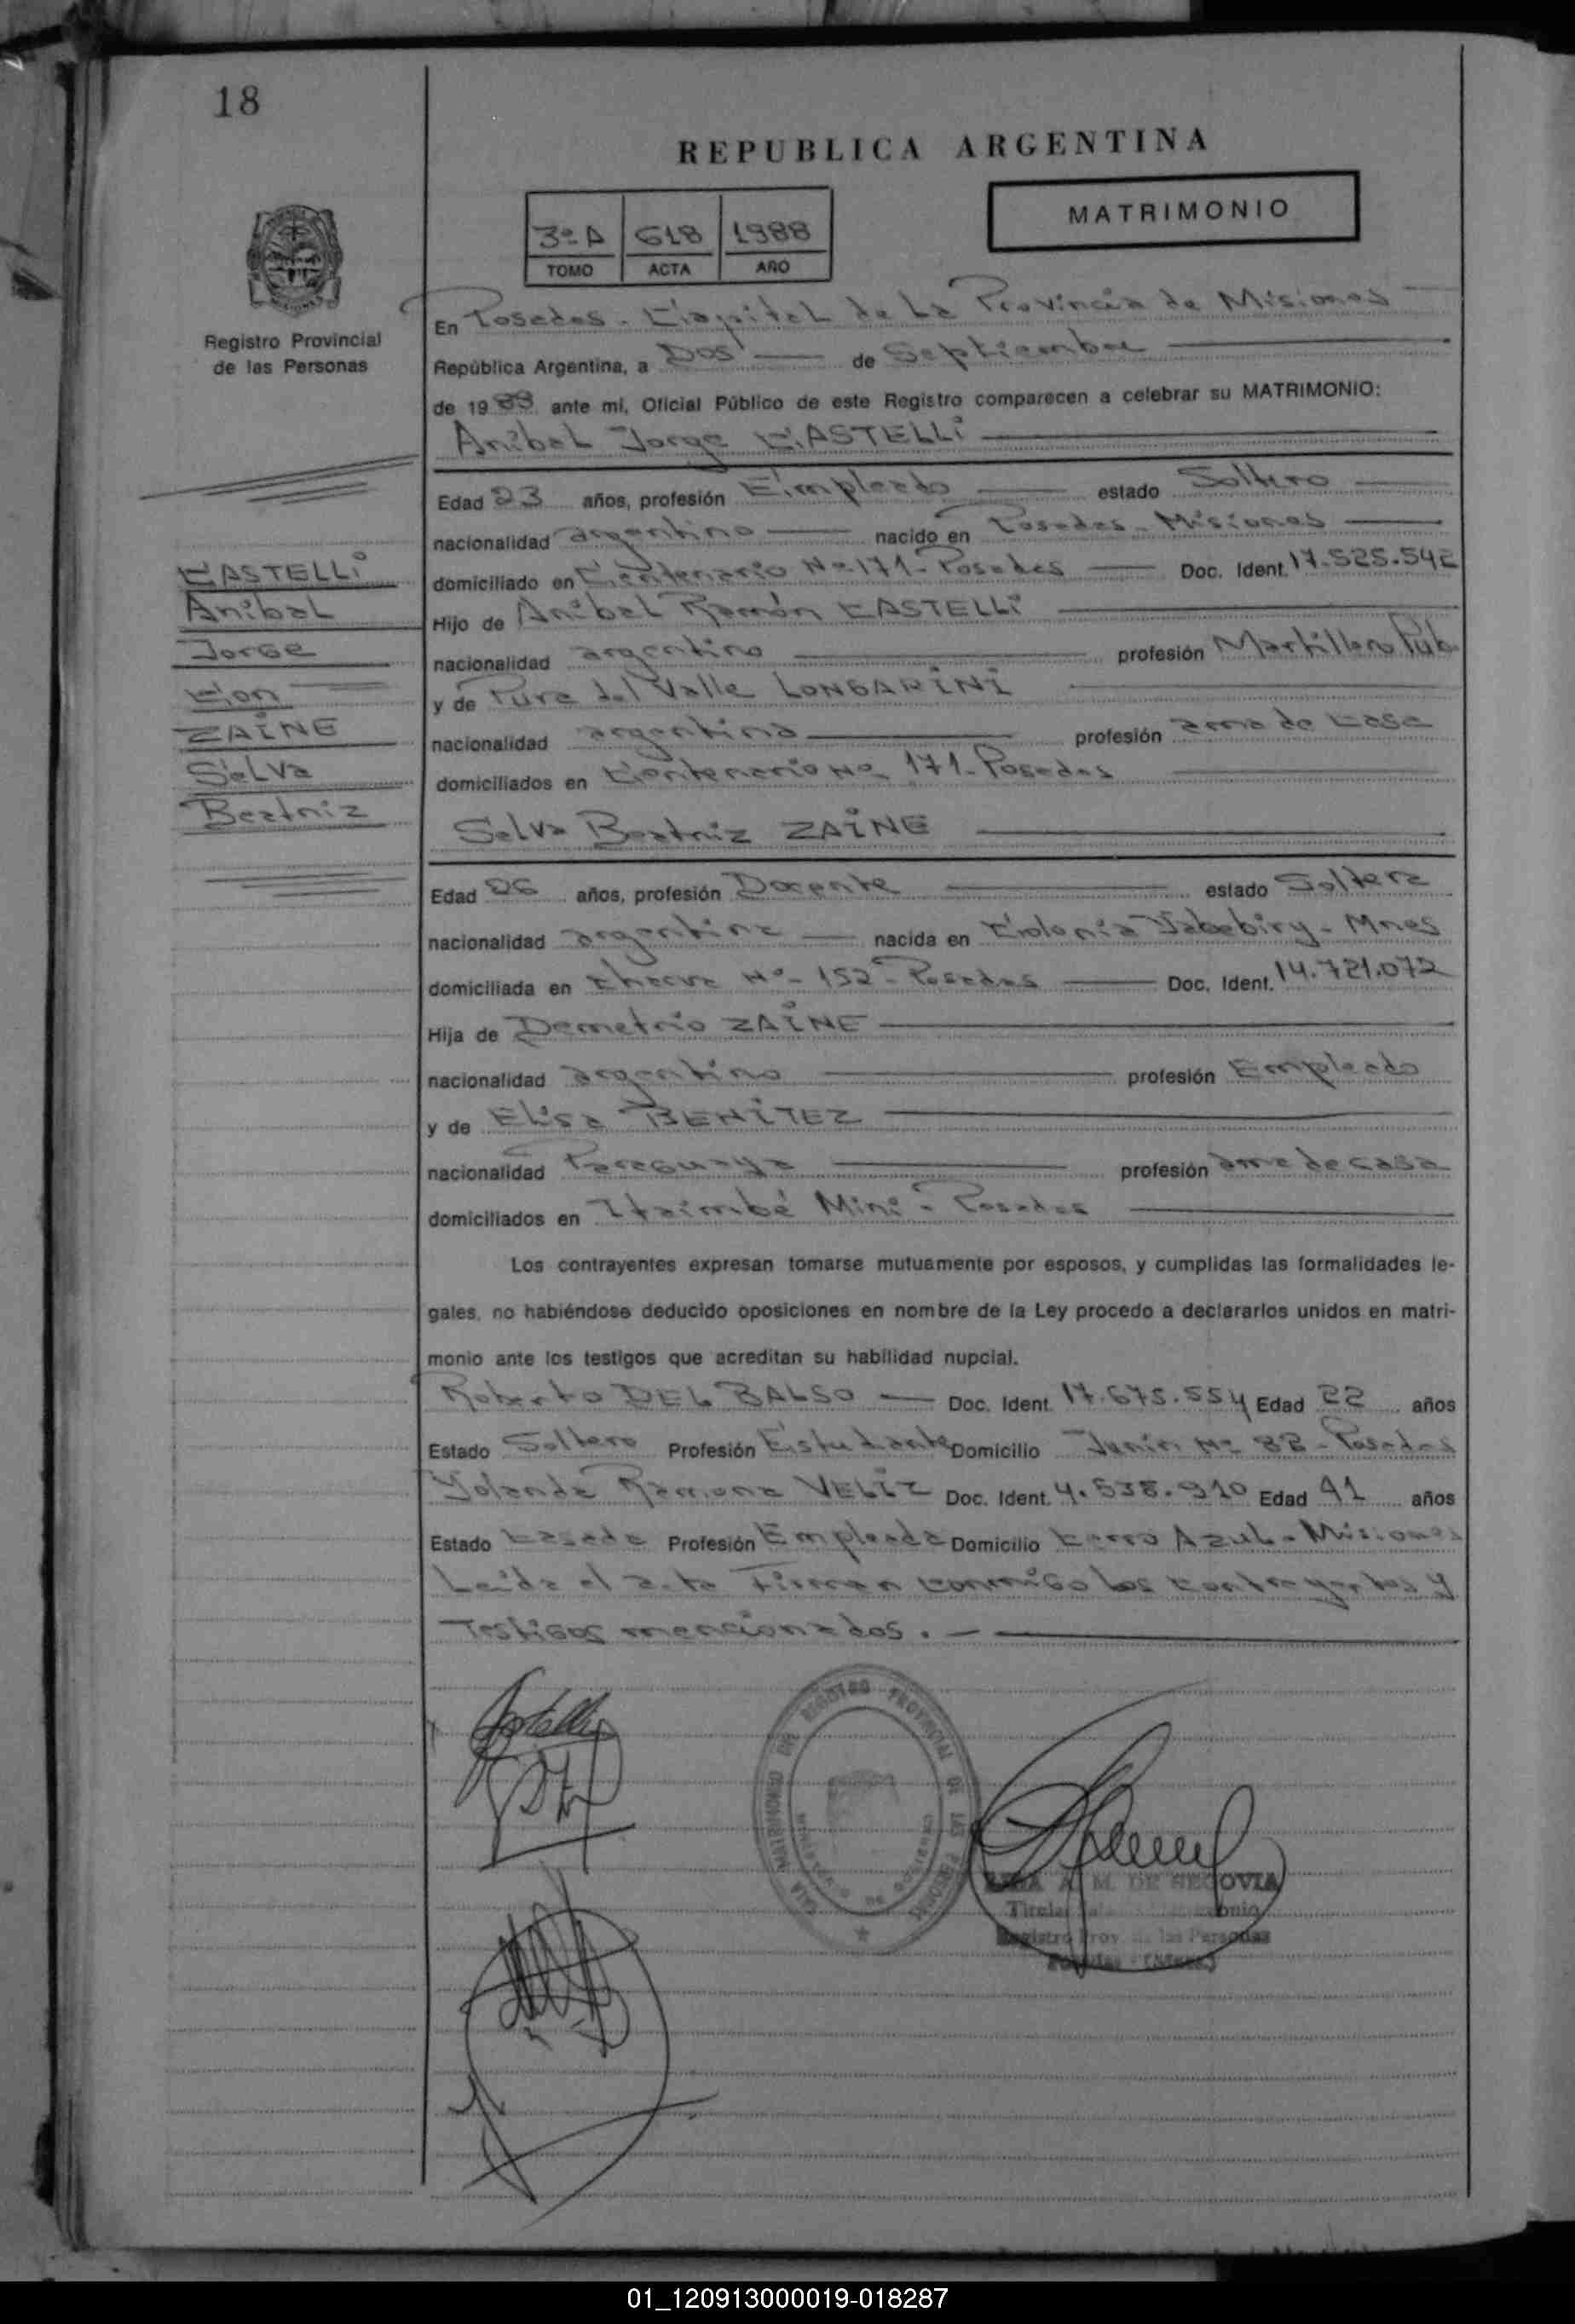 18
REPUBLICA ARGENTINA
MATRIMONIO
3º A 618 1988
TOMO ACTA AÑO
Registro Provincial
de las Personas
En Posadas - Capital de La Provincia de Misiones
República Argentina, a Dos de Septiembre
de 1988 ante mí, Oficial Público de este Registro comparecen a celebrar su MATRIMONIO:
Anibal Jorge CASTELLI
Edad 23 años, profesión Empleado estado Soltero
nacionalidad argentino nacido en Posadas - Misiones
domiciliado en Centenario Nº 171 - Posadas Doc. Ident. 17.525.542
Hijo de Anibal Ramón CASTELLI
nacionalidad argentino profesión Martillero Púb.
y de Pura del Valle LONGARINI
nacionalidad argentina profesión ama de casa
domiciliados en Centenario Nº 171 - Posadas
CASTELLI
Anibal
Jorge
Con
ZAINE
Selva
Beatriz
Selva Beatriz ZAINE
Edad 26 años, profesión Docente estado Soltera
nacionalidad argentina nacida en Colonia Yabebiry - Mnes
domiciliada en Chacra Nº - 152 - Posadas Doc. Ident. 14.721.072
Hija de Demetrio ZAINE
nacionalidad argentino profesión Empleado
y de Elisa BENITEZ
nacionalidad Paraguaya profesión ama de casa
domiciliados en Itaimbé Mini - Posadas
Los contrayentes expresan tomarse mutuamente por esposos, y cumplidas las formalidades le-
gales, no habiéndose deducido oposiciones en nombre de la Ley procedo a declararlos unidos en matri-
monio ante los testigos que acreditan su habilidad nupcial.
Roberto DEL BALSO Doc. Ident. 17.675.554 Edad 22 años
Estado Soltero Profesión Estudiante Domicilio Junín Nº 82 - Posadas
Yolanda Ramona VELIZ Doc. Ident. 4.538.910 Edad 41 años
Estado Casada Profesión Empleada Domicilio Cerro Azul - Misiones
Leída el acta Firman conmigo los contrayentes y
Testigos mencionados. -
SALA MATRIMONIO DEL REGISTRO PROVINCIAL DE LAS PERSONAS
A. M. DE SEGOVIA
Titular
Registro Prov. de las Personas
Posadas (Mnes)
01_120913000019-018287